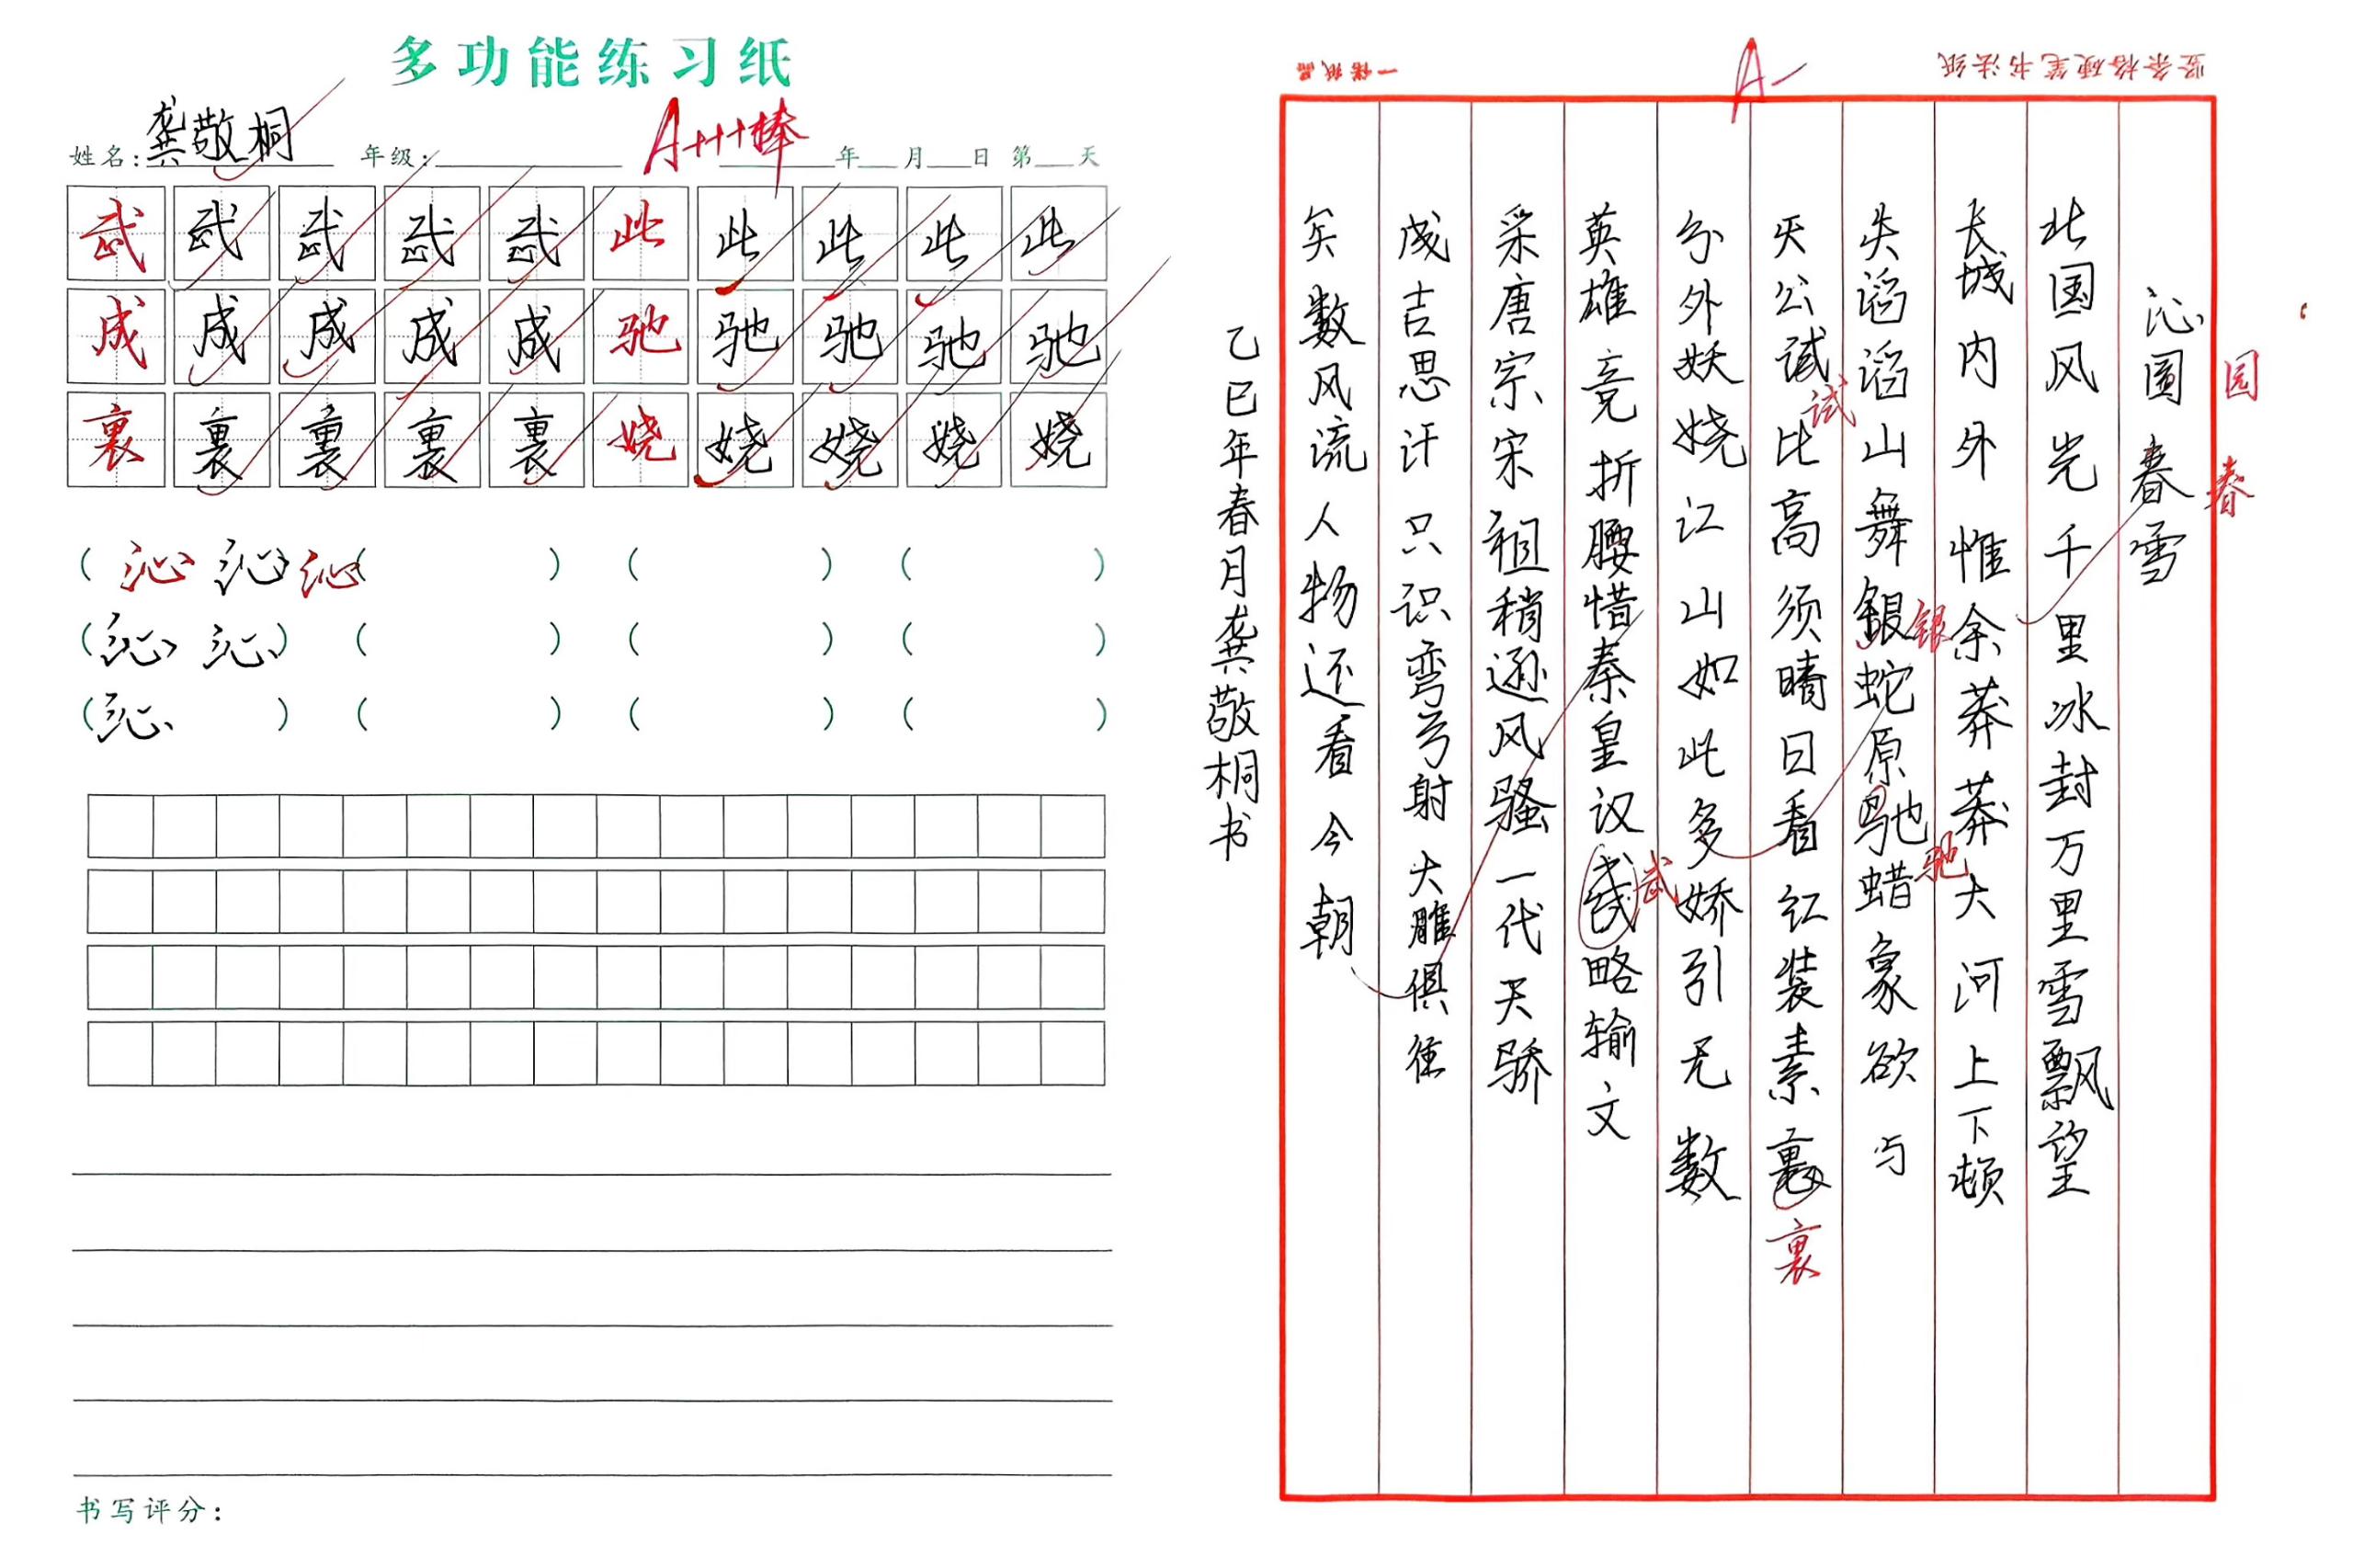 多功能练习纸
姓名：龚敬桐 年级： A+++棒 年 月 日 第 天
武 武 武 武 武 此 此 此 此 此
成 成 成 成 成 驰 驰 驰 驰 驰
裹 裹 裹 裹 裹 娆 娆 娆 娆 娆
（沁 沁 沁（ ） （ ） （ ）
（沁 沁） （ ） （ ） （ ）
（沁 ） （ ） （ ） （ ）
书写评分：
竖条格硬笔书法纸
A-
一诺纸品
沁园春雪
园 春
北国风光千里冰封万里雪飘望
长城内外惟余莽莽大河上下顿
失滔滔山舞银蛇原驰蜡象欲与
银 驰
天公试比高须晴日看红装素裹
试 裹
分外妖娆江山如此多娇引无数
英雄竞折腰惜秦皇汉武略输文
武
采唐宗宋祖稍逊风骚一代天骄
成吉思汗只识弯弓射大雕俱往
矣数风流人物还看今朝
乙巳年春月龚敬桐书